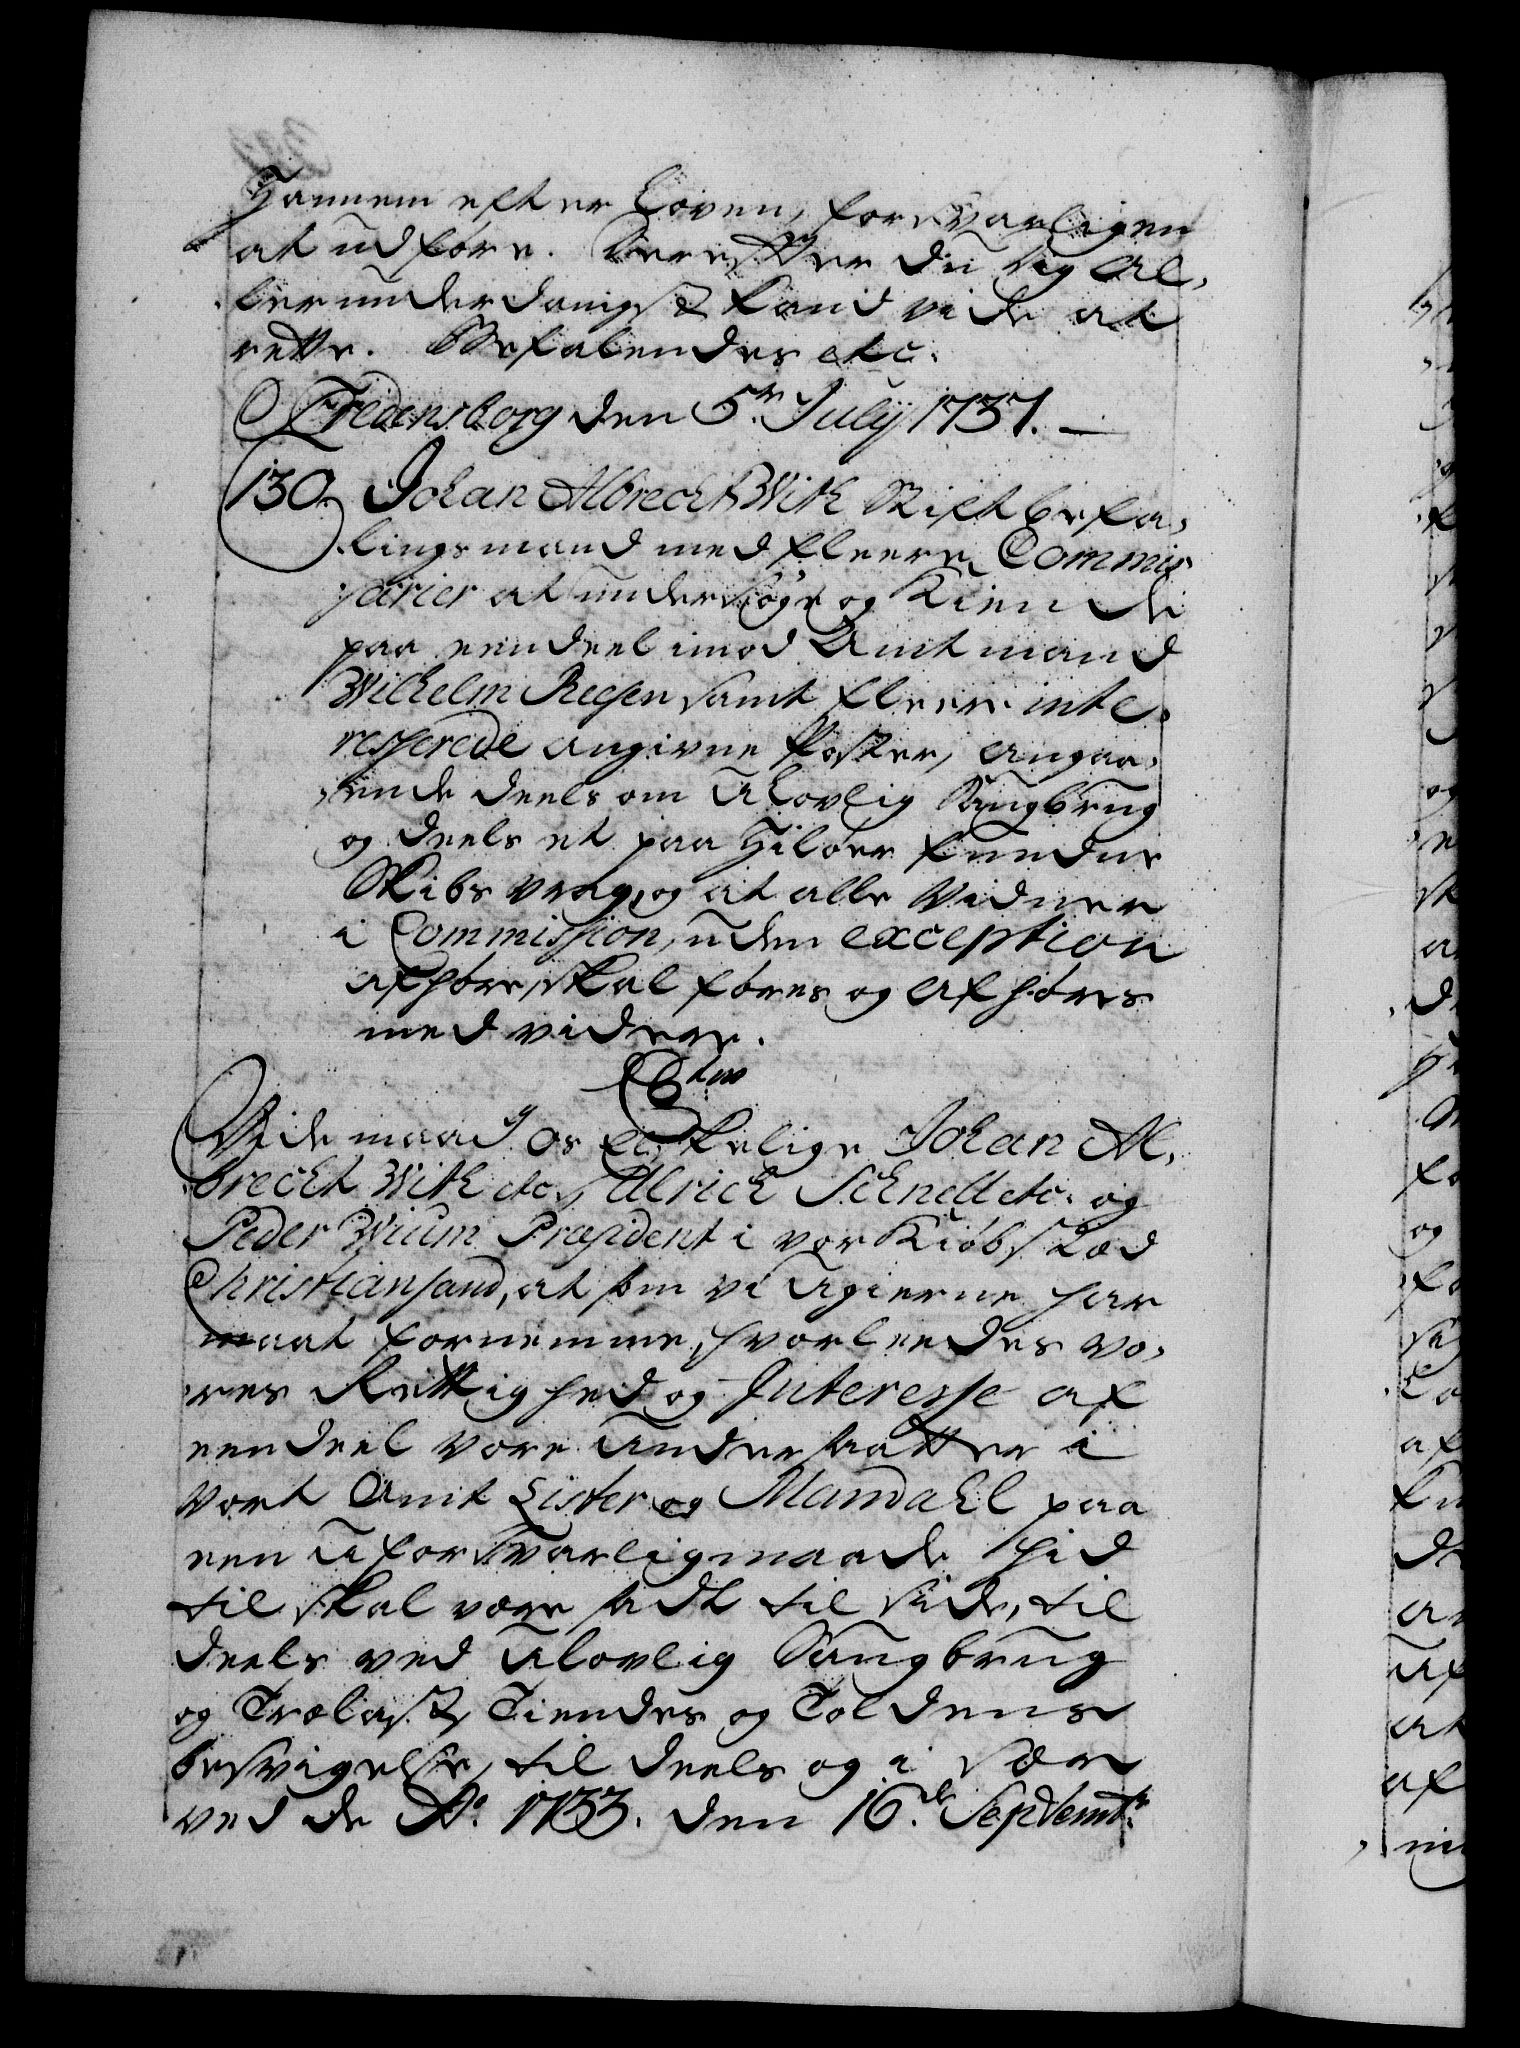 Hannem efter Loven, forsvarligen
at udføre. Derefter du dig al,,
lerunderdanigst kand vide at
rette. Befalendes etc.
Fredensborg den 5te Julij 1737.
130. Johan Albrecht With Stiftbefa,,
lingsmand med fleere Commis
sarier at undersøge og Kiende
paa eendeel imod Amtmand
Wilhelm Reesen samt fleere inte,,
resserede angivne Poster, angaa,,
ende deels om Ulovlig Saugbrug
og deels et paa Hiløer fundne
Skibs vrag, og at alle Vidner
i Commission, uden exception
skal føres og afhøres
med videre.
C 6 tus
Viide maa I Os elskelige Johan Al,,
brecht With etc. Ulrich Schnell etc. og
Peder Wium Præsident i vor Kiøbstæd
Christiansand, at som vi Ugierne har
maat fornemme, hvorleedes vo,,
res Rettighed og Interesse af
eendeel vore Undersaatter i
vort Amt Lister og Mandahl paa
een Uforsvarlig maade hid
til skal være sadt til side, til
deels ved Ulovlig Saugbrug
og Trælast, Tiendes og Toldens
besvigelse, til deels og i sær
ved de Ao. 1733. den 16de Septembr.